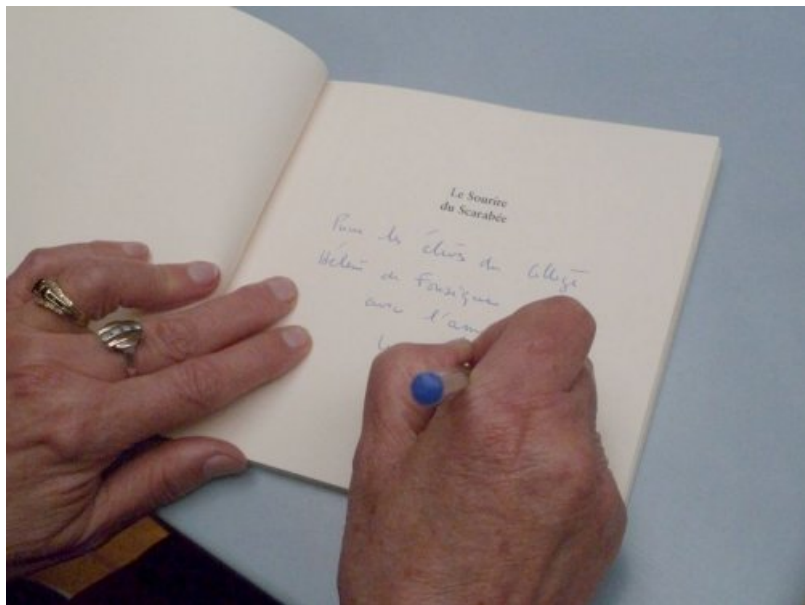 Le Sourire
du Scarabée
Pour les élèves du Collège
Hélène de Fonsèques
avec l'am